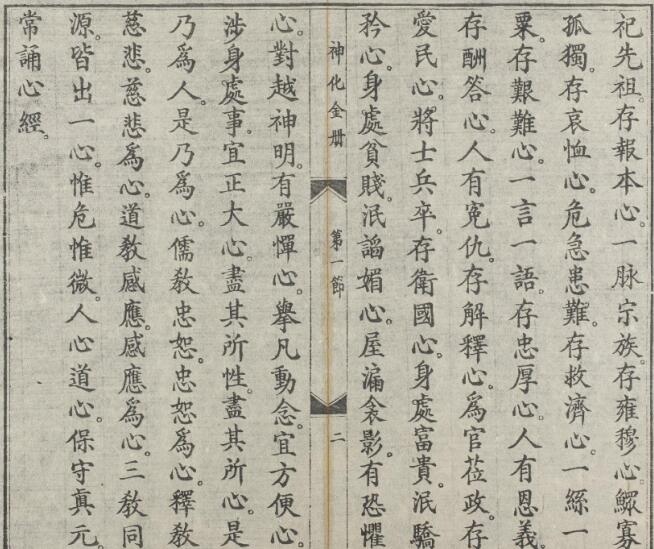 祀先祖。存報本心。一脉宗族。存雍穆心。鰥寡
孤獨。存哀恤心。危急患難。存救濟心。一絲一
粟。存艱難心。一言一語。存忠厚心。人有恩義。
存酬答心。人有冤仇。存解釋心。為官莅政。存
愛民心。將士兵卒。存衛國心。身處富貴。泯驕
矜心。身處貧賤。泯謟媚心。屋漏衾影。有恐懼
神化金册 第一節 二
心。對越神明。有嚴憚心。舉凡動念。宜方便心。
涉身處事。宜正大心。盡其所性。盡其所心。是
乃為人。是乃為心。儒教忠恕。忠恕為心。釋教
慈悲。慈悲為心。道教感應。感應為心。三教同
源。皆出一心。惟危惟微。人心道心。保守真元。
常誦心經。